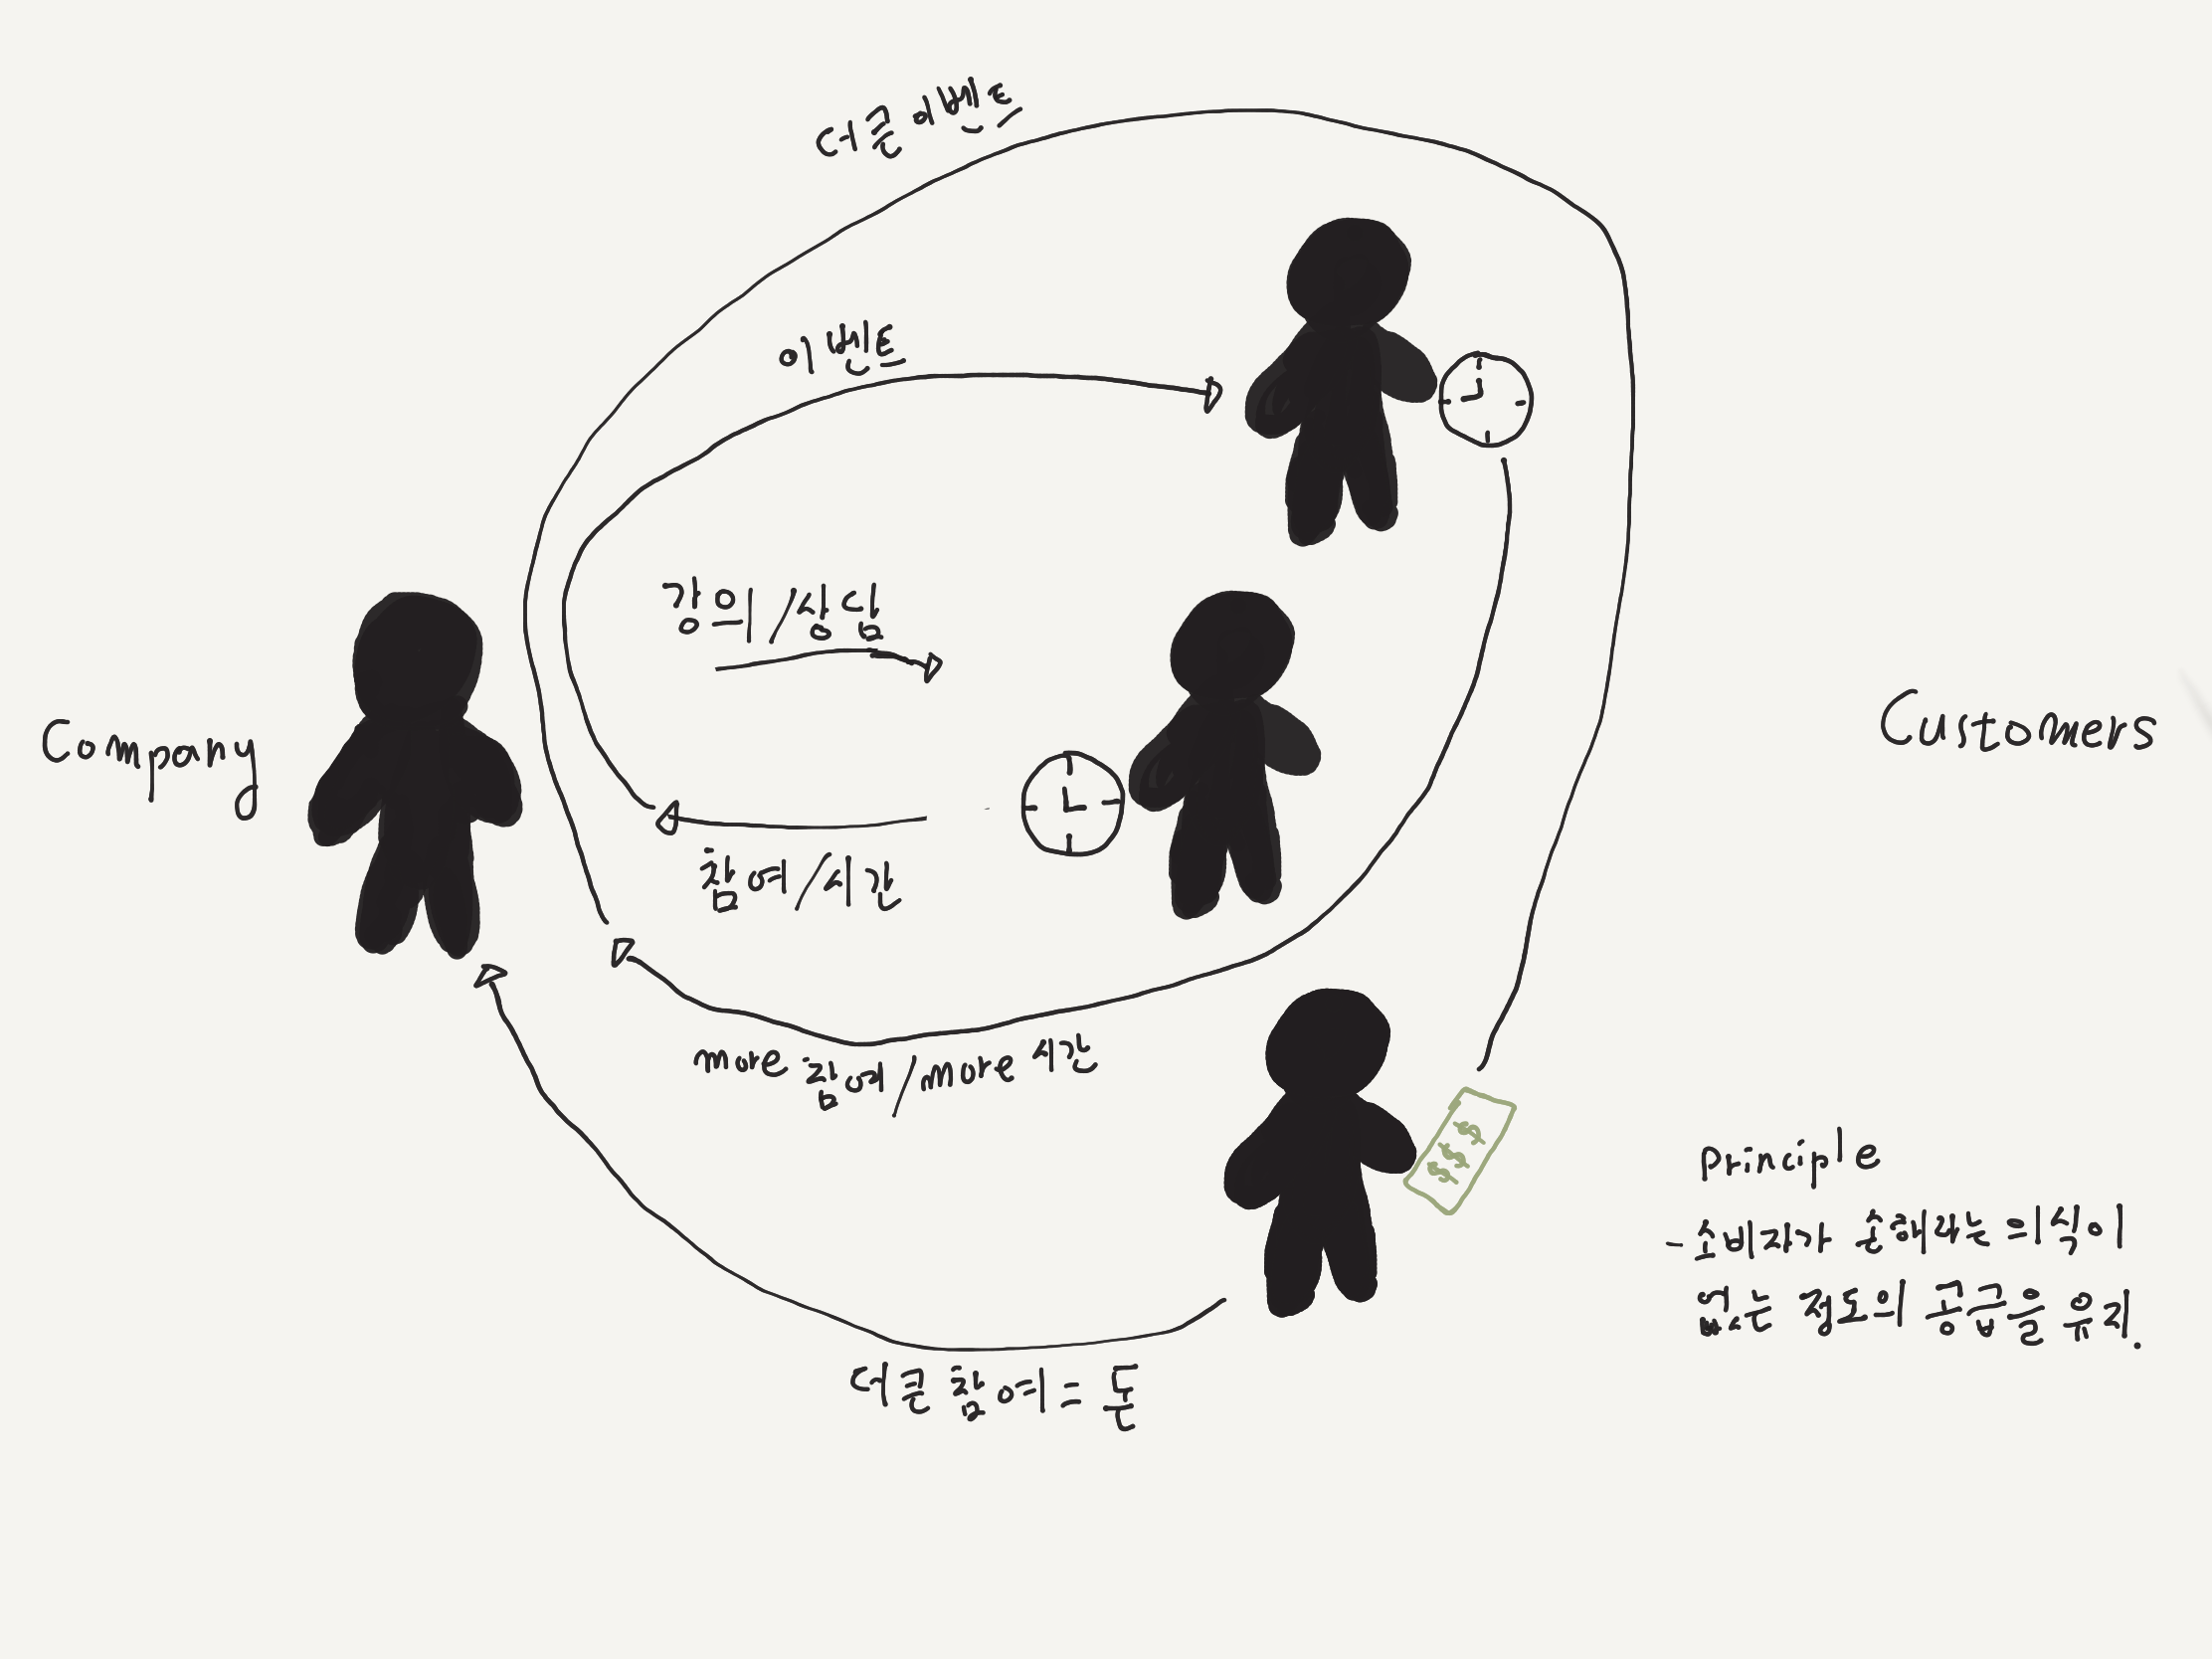 더 큰 이벤트
이벤트
강의/상담
Company
Customers
참여/시간
more 참여/more 시간
Principle
- 소비자가 손해라는 의식이
없는 정도의 공급을 유지.
$$$
더 큰 참여 = 돈